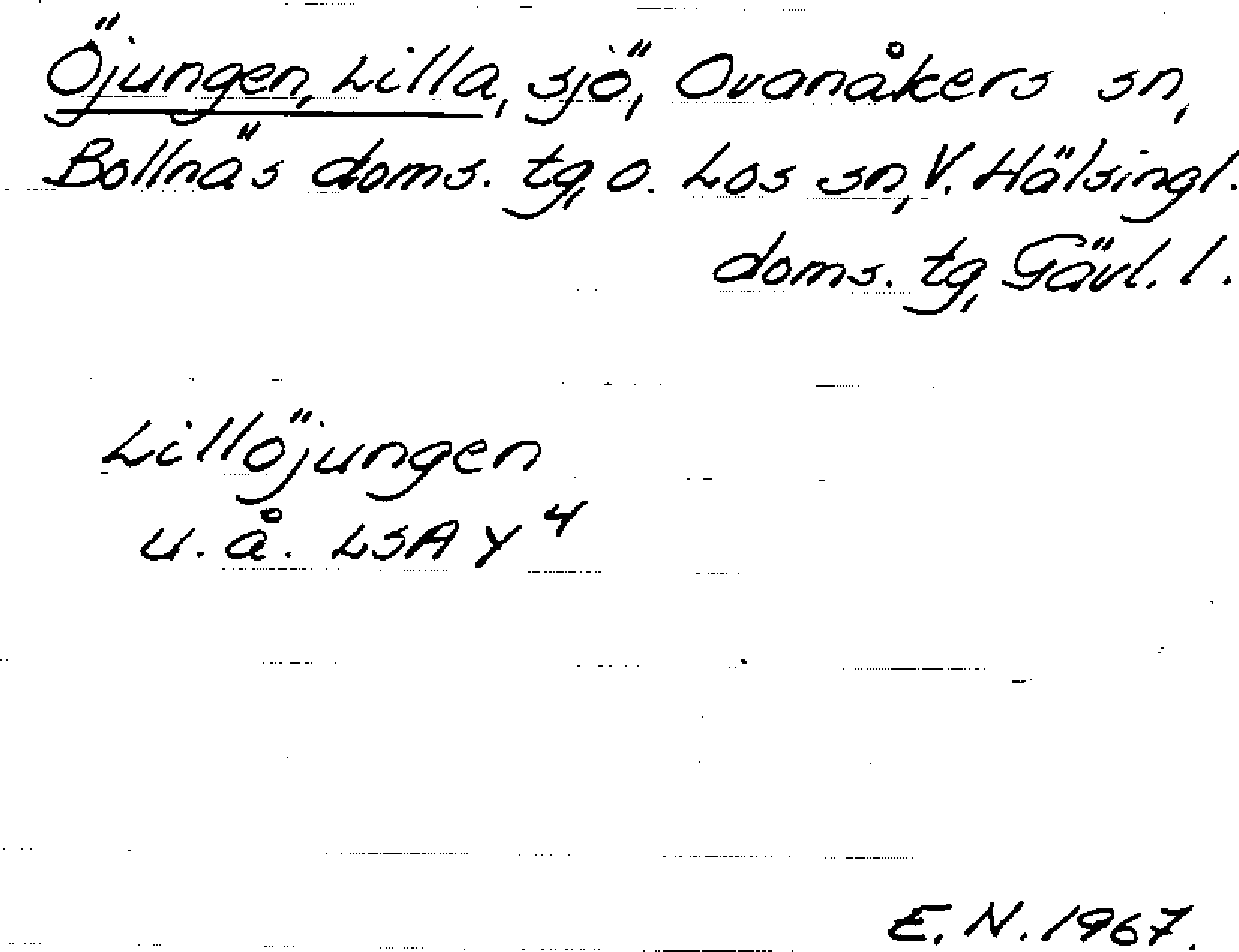 Öjungen, Lilla, sjö, Ovanåkers sn,
Bollnäs doms. tg, o. Los sn, V. Hälsingl.
doms. tg, Gävl. l.
Lillöjungen
u. å. LSA Y 4
E. N. 1967.